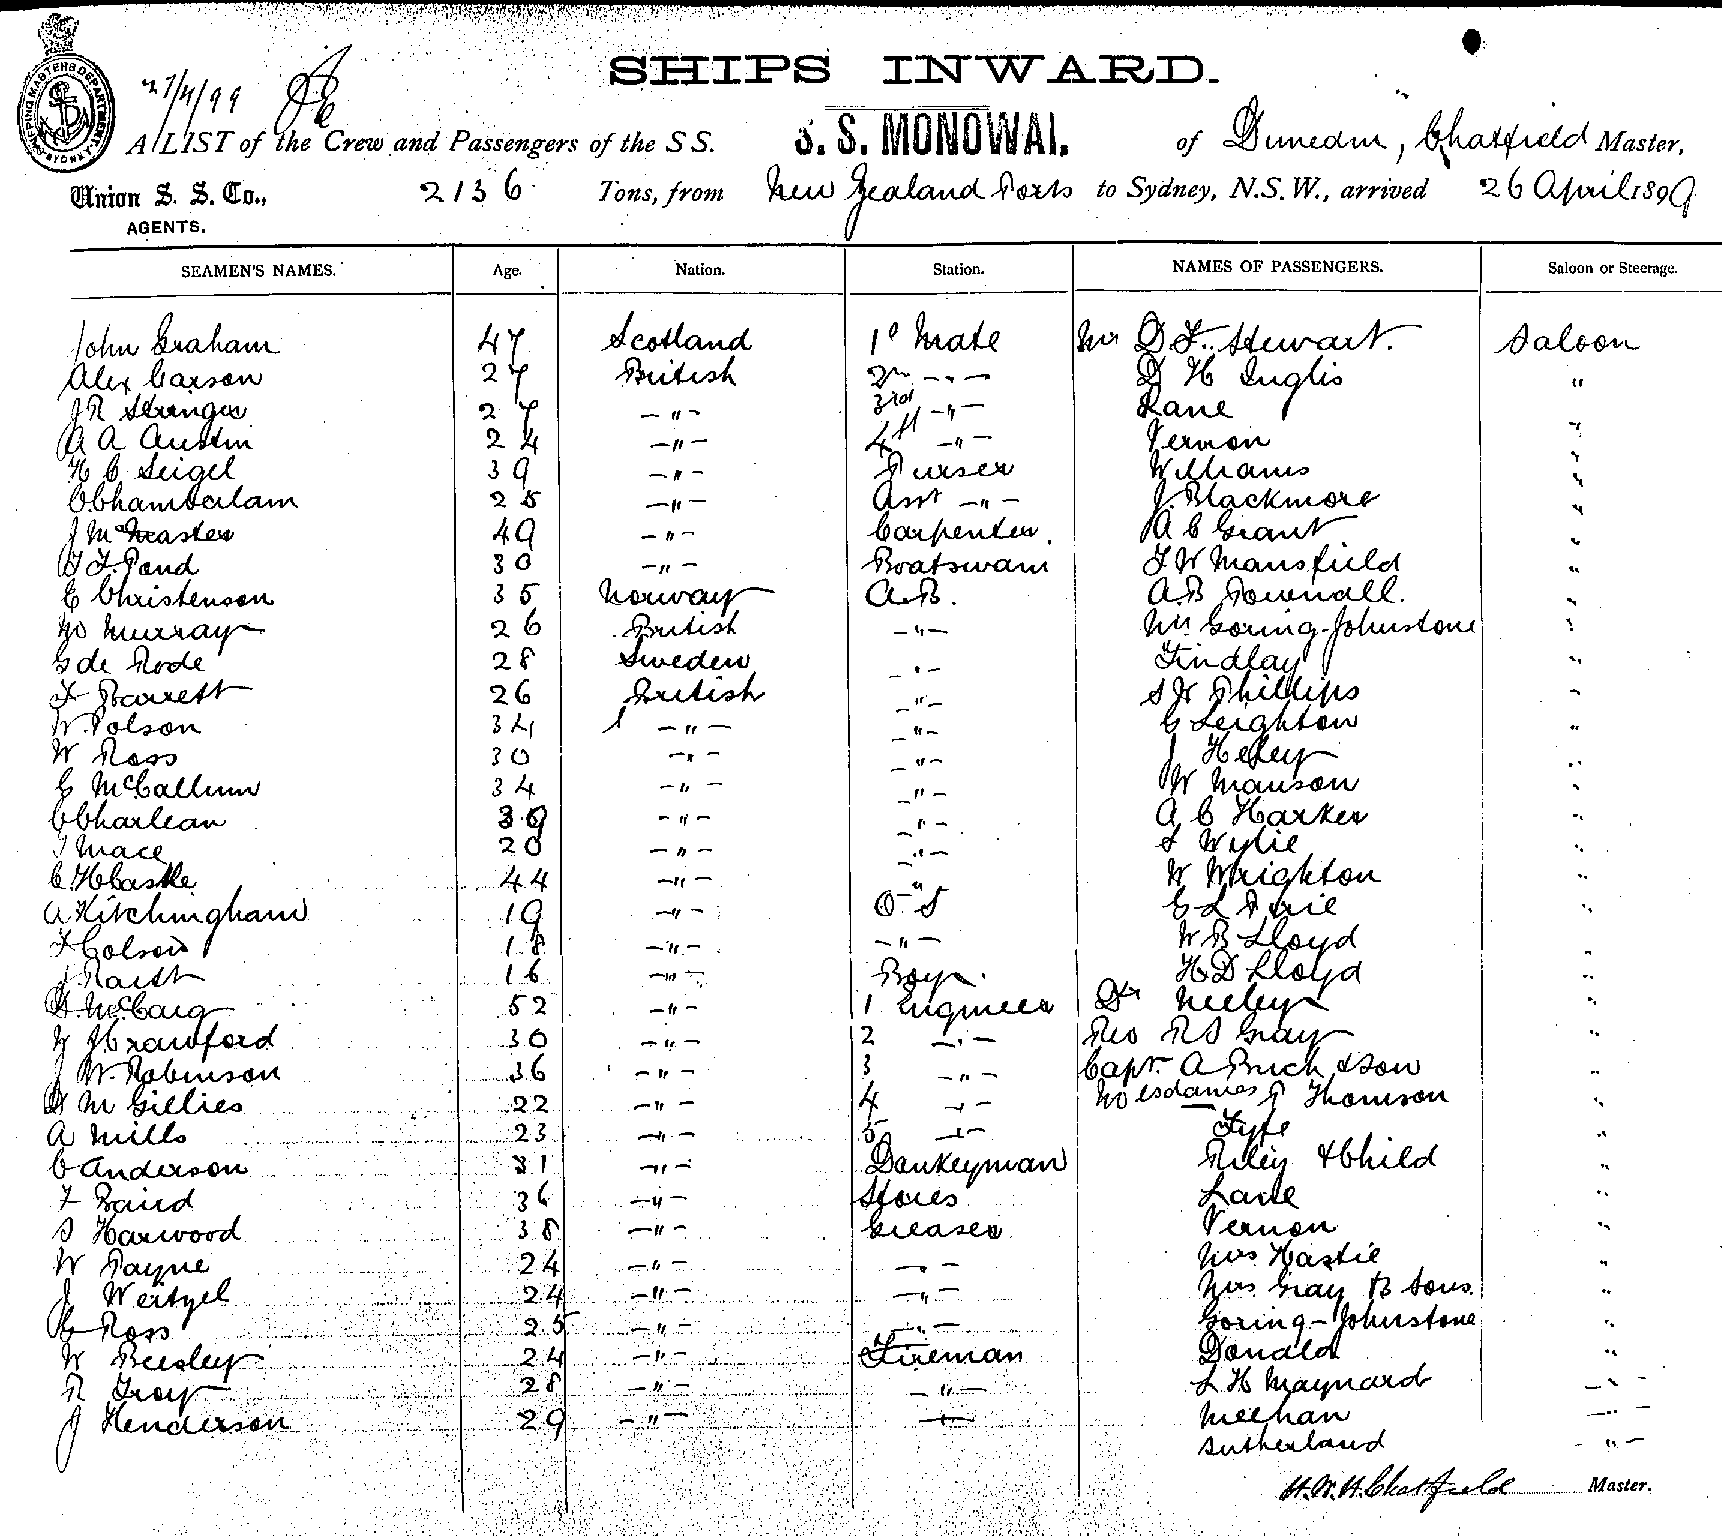 SHIPPING MASTERS DEPARTMENT SYDNEY
27/4/99
SHIPS INWARD.
A LIST of the Crew and Passengers of the S S. S. S. MONOWAI. of Dunedin, Chatfield Master,
Union S. S. Co., 2136 Tons, from New Zealand Ports to Sydney, N.S.W., arrived 26 April 1899
AGENTS.
SEAMEN'S NAMES. Age. Nation. Station. NAMES OF PASSENGERS. Saloon or Steerage.
John Graham 47 Scotland 1º Mate Mr D F. Stewart. Saloon
Alex Carson 27 British 2nd -„- D H Inglis „
J R Stringer 27 -„- 3rd -„- Lane „
A A Austin 24 -„- 4th -„- Vernon „
H C Seigel 39 -„- Purser Williams „
C Chamberlain 25 -„- Asst -„- J. Blackmore „
J McMaster 49 -„- Carpenter. A C Grant „
F. Pond 30 -„- Boatswain F W Mansfield „
C Christenson 35 Norway A.B. A.B Pownall. „
M Murray 26 British -„- Goring-Johnstone „
G de Rode 28 Sweden „- Findlay „
F Barrett 26 British -„- S W Phillips „
W. Polson 34 -„- -„- C Leighton „
W Ross 30 -„- -„- J Heley „
C McCallum 34 -„- -„- W Manson „
C Charlean 39 -„- -„- A C Harker „
T Mace 20 -„- -„- F Wylie „
C H Castle 44 -„- „ W Wrighton „
A Kitchingham 19 -„- O S C L Pirie „
F Colson 18 -„- -„- W B Lloyd „
J Raist 16 -„- Boy. H D Lloyd „
McCaig 52 -„- 1 Engineer Dr Neeley „
Crawford 30 -„- 2 -„- Rev R S Gray „
J W. Robinson 36 -„- 3 -„- Capt. A Birch & Son „
M Gillies 22 -„- 4 -„- Mesdames Thomson „
A Mills 23 -„- 5 -„- Fyfe „
C Anderson 31 -„- Donkeyman Riley & Child „
F Baird 36 -„- Stores Lane „
S Harwood 38 -„- Greaser Vernon „
W Payne 24 -„- -„- Mrs Hastie „
J Weitzel 24 -„- -„- Mrs Gray & Sons. „
C Ross 25 -„- -„- Goring-Johnstone „
W Beesley 24 -„- Fireman Donald „
R Troy 28 -„- -„- L H Maynard -„-
J Henderson 29 -„- -„- Meehan -„-
Sutherland -„-
H.W.H. Chatfield Master.